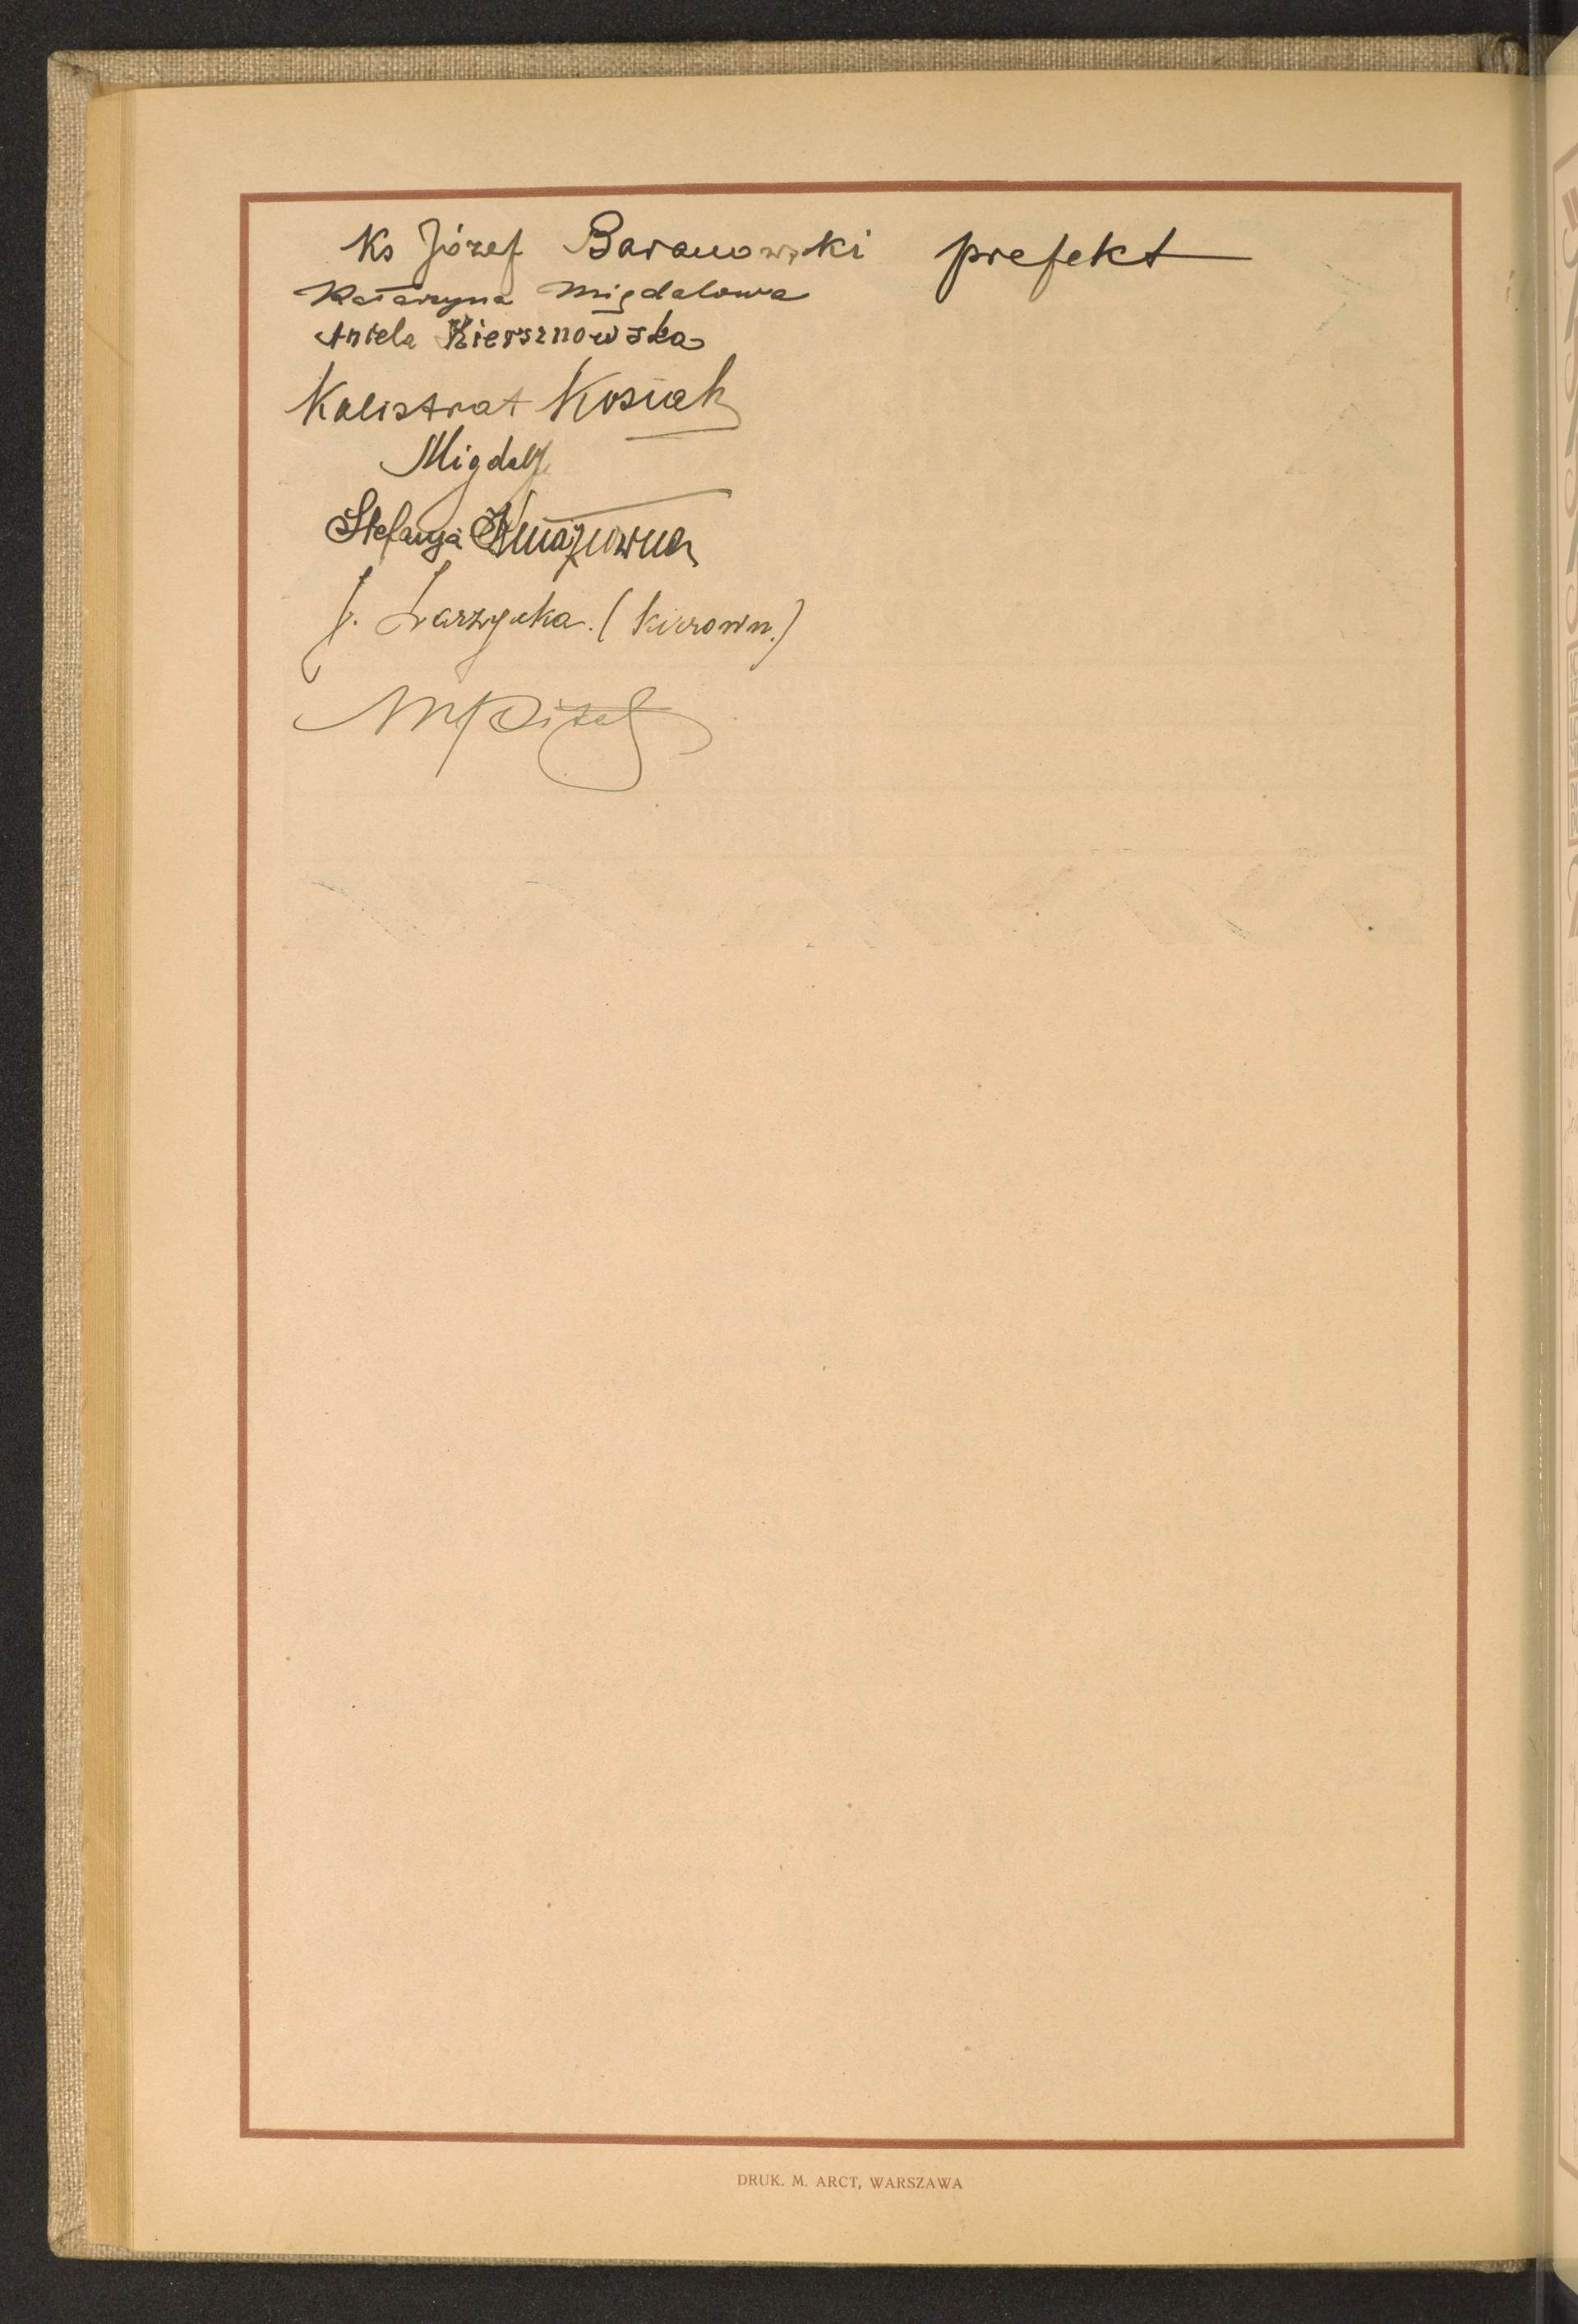 Ks Józef Baranowski prefekt
Katarzyna Migdalowa
Aniela Kiersznowska
Kalistrat Kosiak
Migdał
Stefanja Kniaziówna
J. Zarzycka. (kierown.)
DRUK. M. ARCT, WARSZAWA